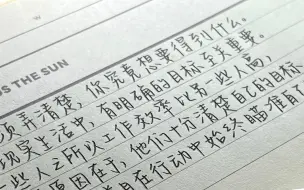 W
S THE SUN
须弄清楚，你究竟想要得到什么。
现实生活中，有明确的目标至关重要。
些人之所以工作效率比另一些人高，
原因在于，他们十分清楚自己的目标
且在行动中始终瞄准自己